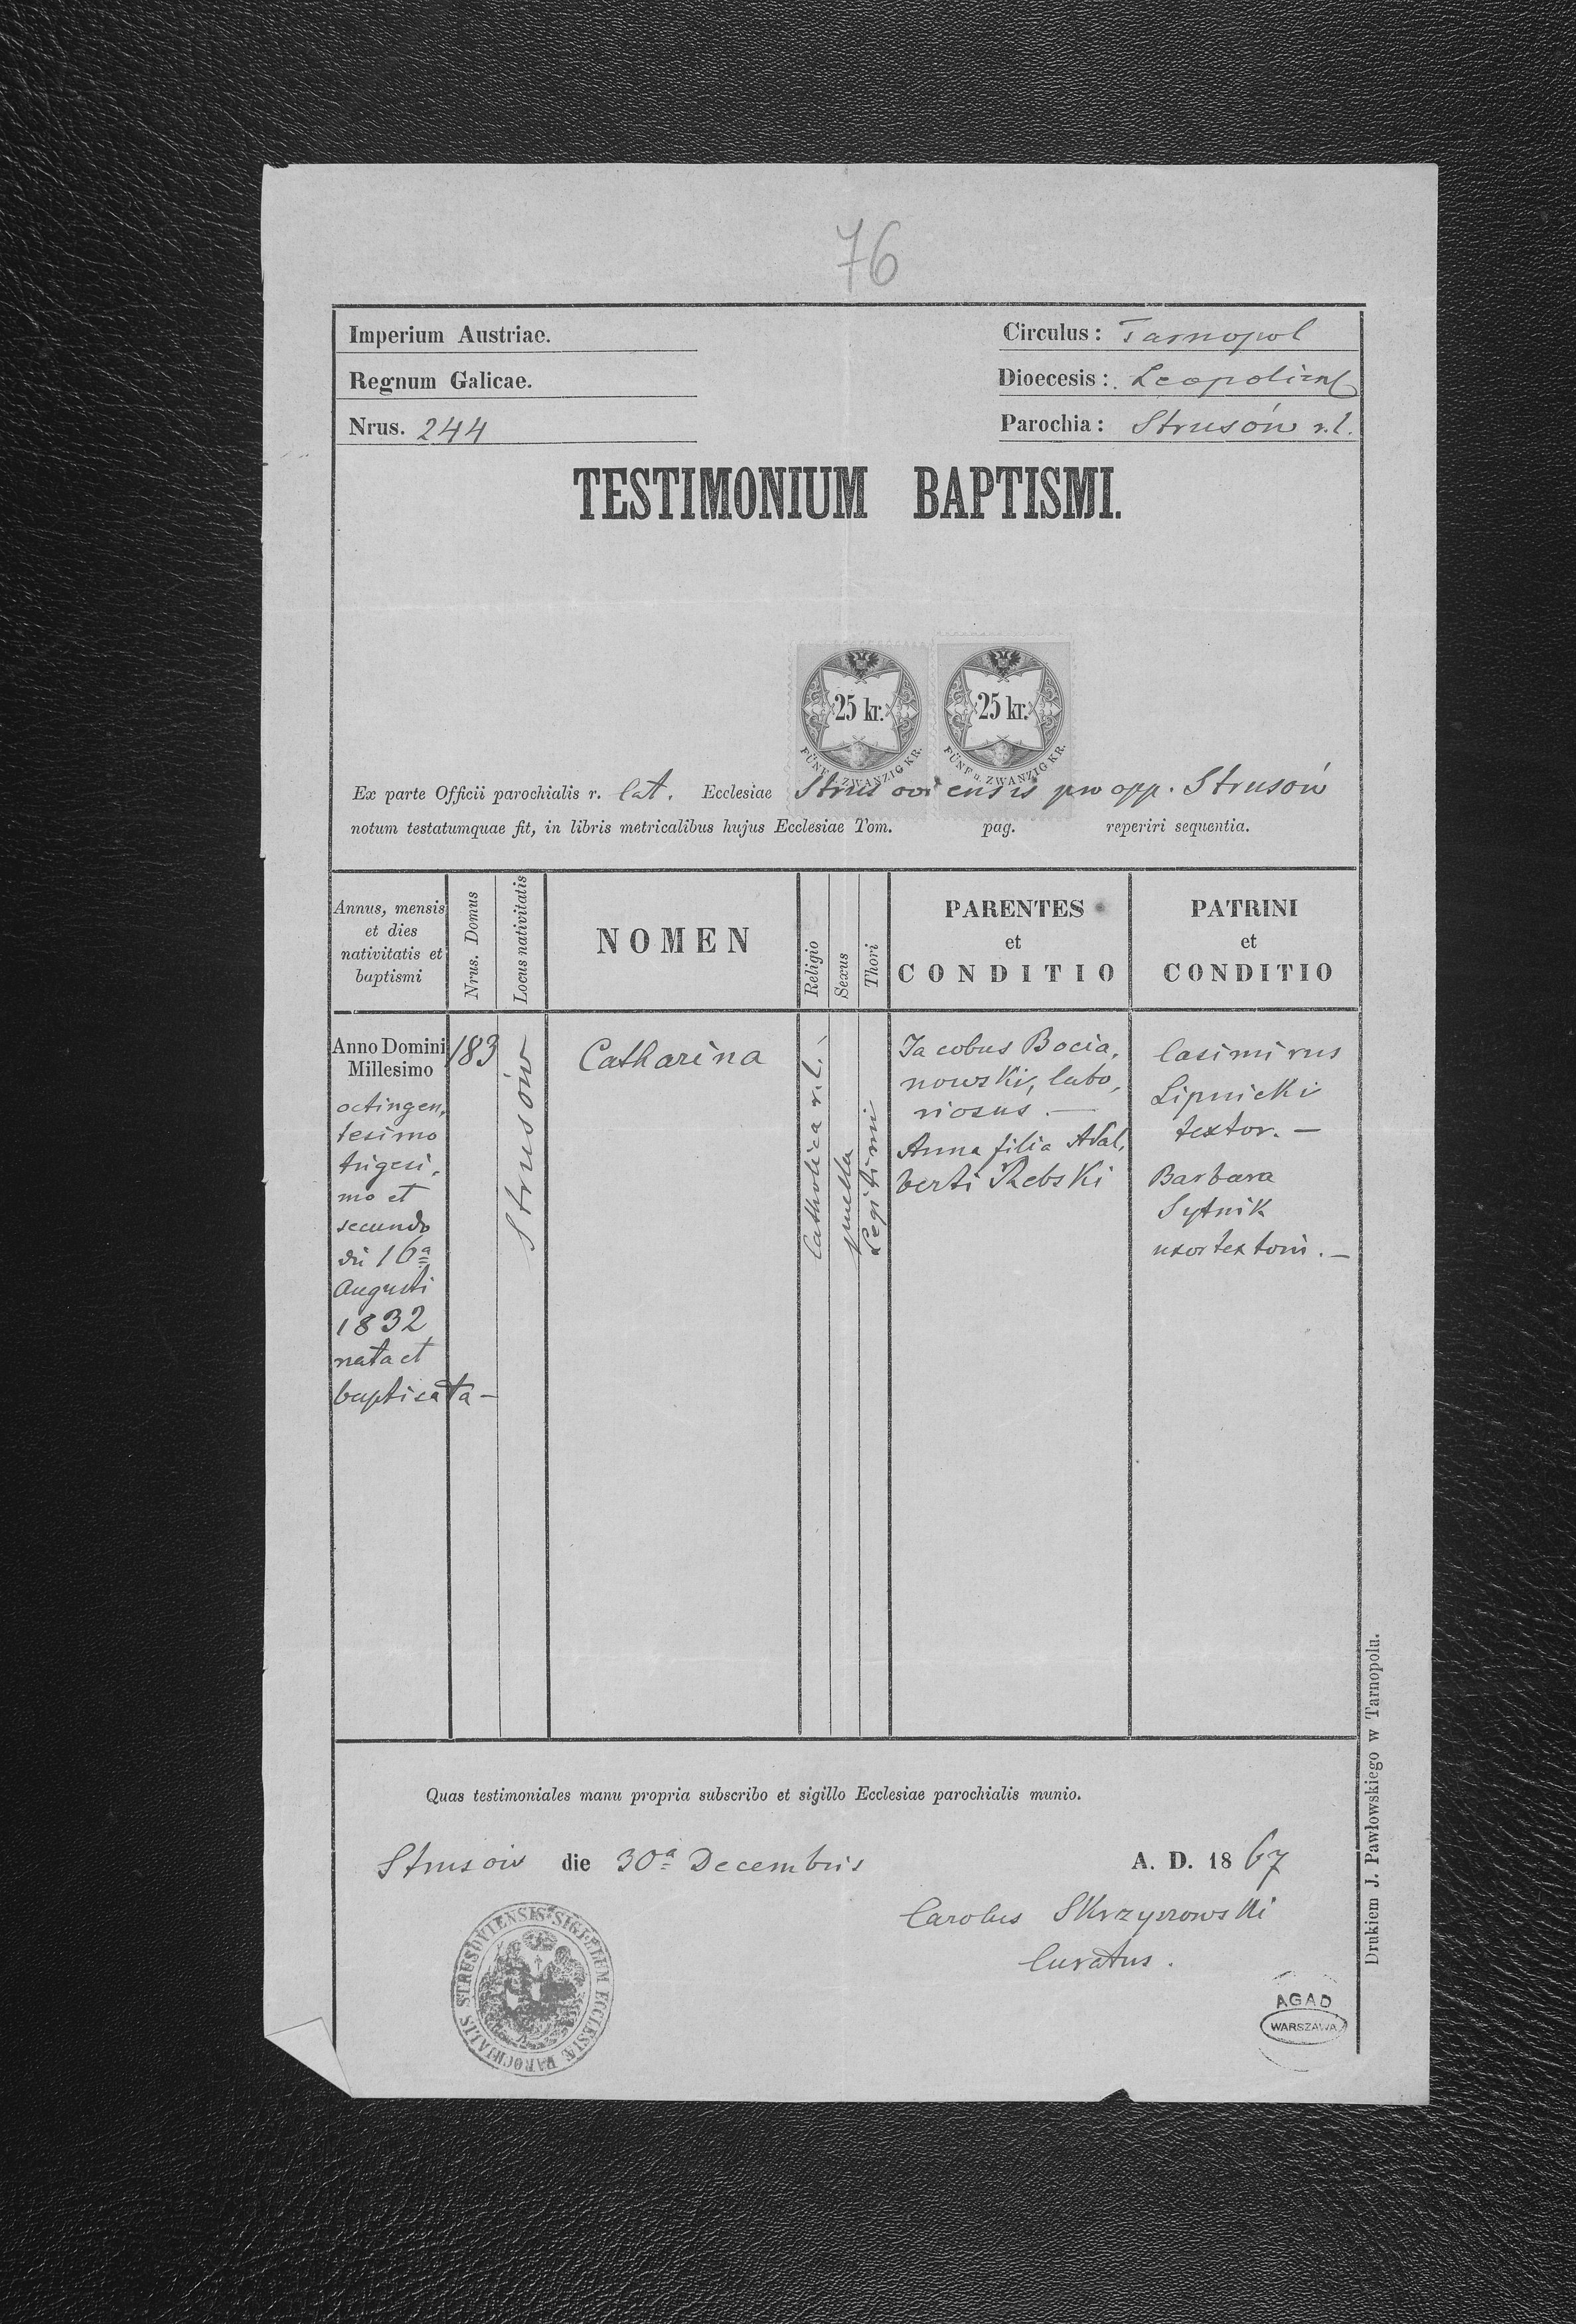 76
Imperium Austriae.
Circulus: Tarnopol
Regnum Galicae.
Dioecesis: Leopoliens
Nrus. 244
Parochia: Strusów r.l.
TESTIMONIUM BAPTISMI.
25 kr. 25 kr.
FÜNF u. ZWANZIG KR. FÜNF u. ZWANZIG KR.
Ex parte Officii parochialis r. lat. Ecclesiae Strusoviensis pro opp. Strusów
notum testatumquae fit, in libris metricalibus hujus Ecclesiae Tom. pag. reperiri sequentia.
Annus, mensis
et dies
nativitatis et
baptismi
Nrus. Domus
Locus nativitatis
NOMEN
Religio
Sexus
Thori
PARENTES
et
CONDITIO
PATRINI
et
CONDITIO
Anno Domini
Millesimo
octingen,
tesimo
trigesi,
mo et
secundo
die 16a
Augusti
1832
nata et
baptisata –
183
Strusów
Catharina
Catholica r.l. –
puella
Legitimi
Jacobus Bocia,
nowski, labo,
riosus. —
Anna filia Adal,
berti Rebski
Casimirus
Lipnicki
textor. —
Barbara
Sytnik
uxor textoris. —
Quas testimoniales manu propria subscribo et sigillo Ecclesiae parochialis munio.
Strusów die 30a Decembris A. D. 1867
Carolus
Curatus.
SIGILLUM ECCLESIÆ PAROCHIALIS STRUSOVIENSIS
AGAD
WARSZAWA
Drukiem J. Pawłowskiego w Tarnopolu.